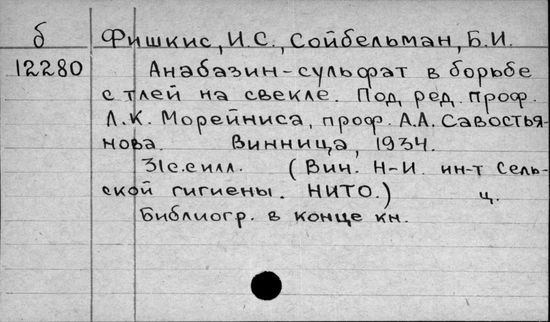 б Фишкис, И.С., Сойбельман, Б.И.
12280 Анабазин-сульфат в борьбе
с тлей на свекле. Под ред. проф.
Л.К. Морейниса, проф. А.А. Савостья-
нова. Винница, 1934.
31с. с илл. (Вин. Н-И. ин-т сель-
ской гигиены. НИТО.) ц.
Библиогр. в конце кн.